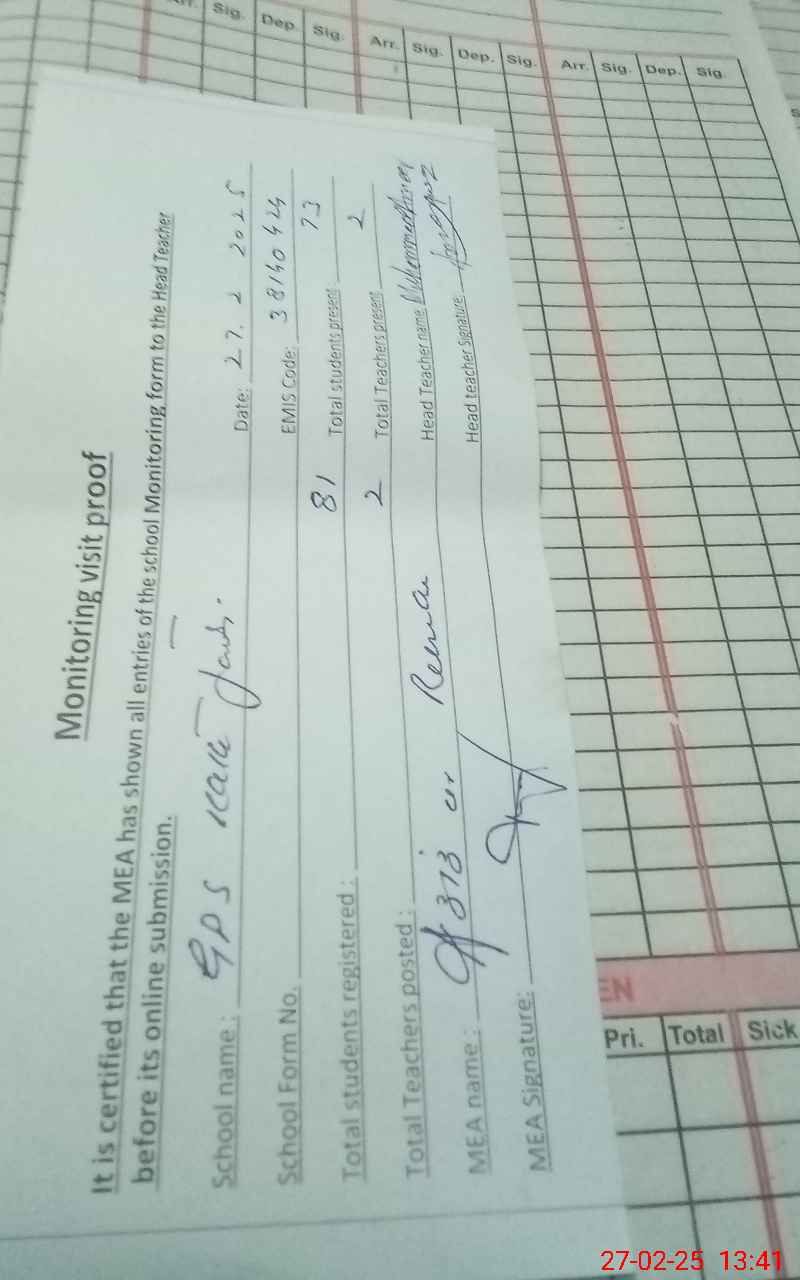 Arr. Sig. Dep. Sig. Arr. Sig. Dep. Sig. Arr. Sig. Dep. Sig.
Monitoring visit proof
It is certified that the MEA has shown all entries of the school Monitoring form to the Head Teacher
before its online submission.
School name : GPS Date: 27. 2 2025
School Form No. EMIS Code:
Total students registered : 81 Total students present: 73
Total Teachers posted : 2 Total Teachers present: 2
MEA name : ur Head Teacher name
MEA Signature: Head teacher Signature:
EN
Pri. Total Sick
27-02-25 13:41